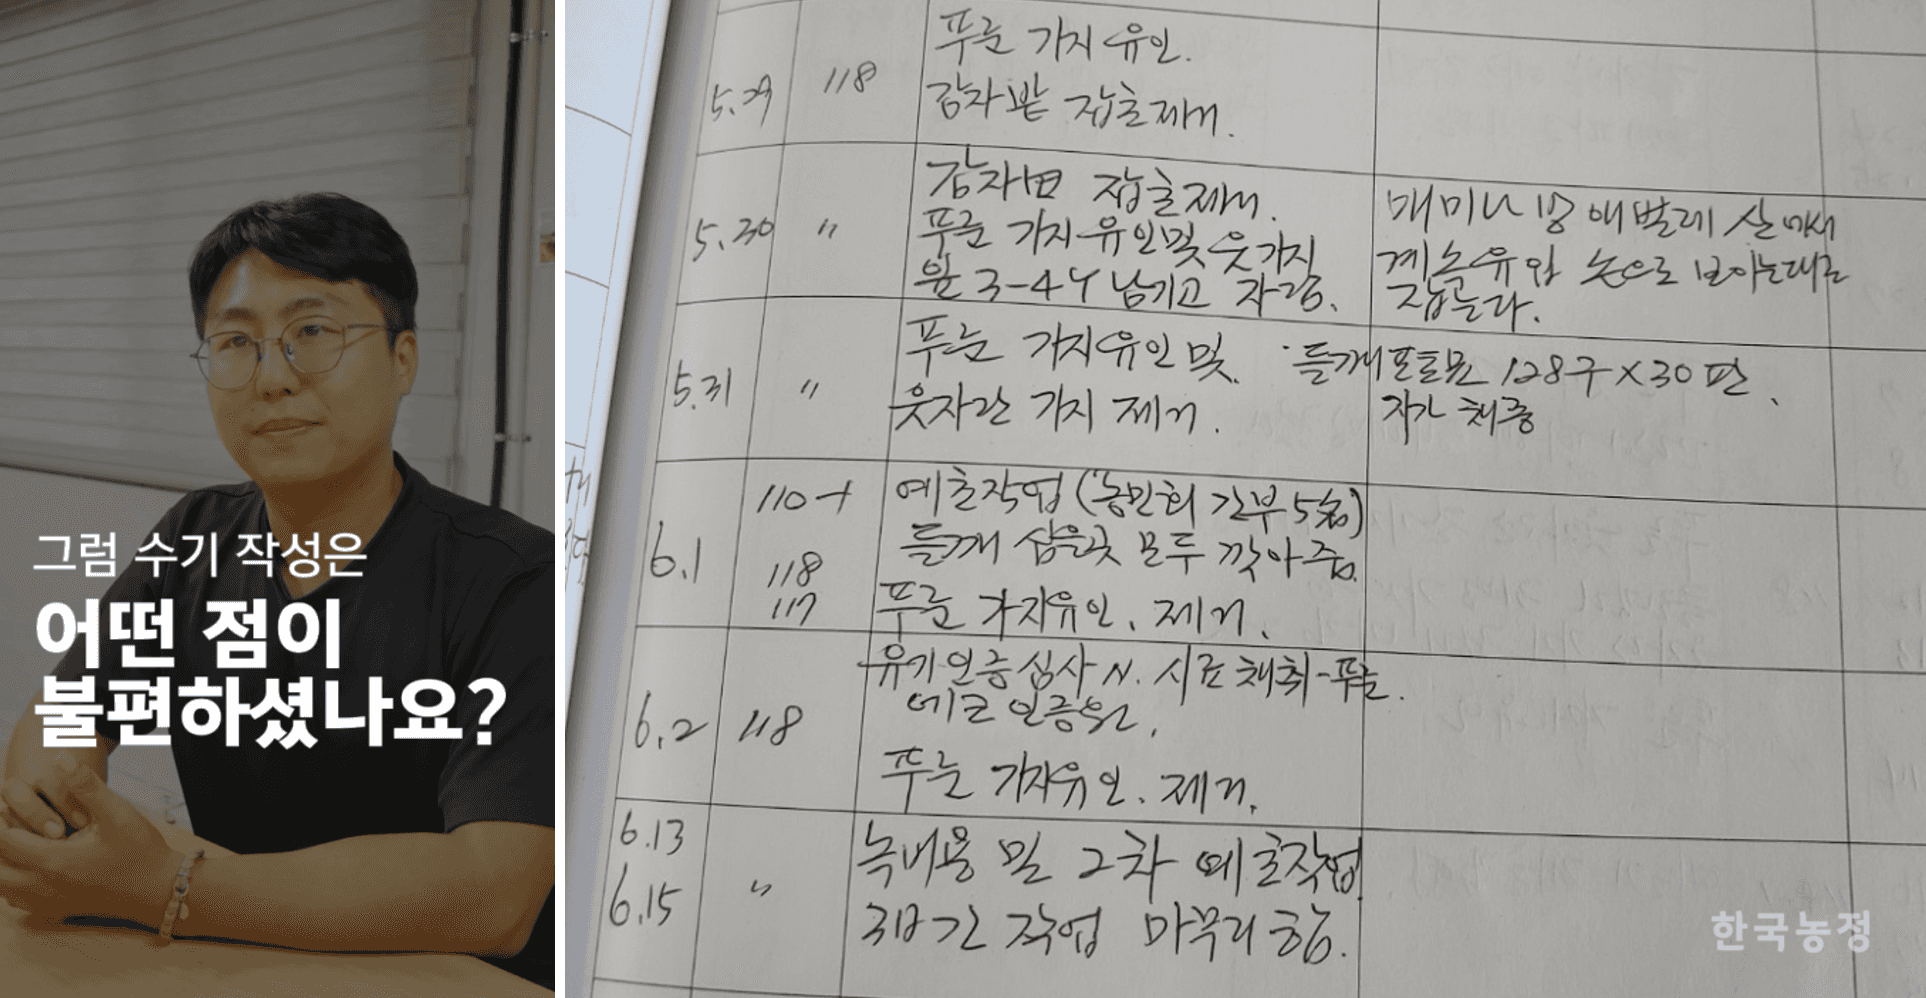 그럼 수기 작성은
어떤 점이
불편하셨나요?
푸룬 가지유인.
5.29 118
감자밭 잡초제거.
감자밭 잡초제거.
5.30 〃
푸룬 가지유인및 웃가지
잎 3-4 남기고 자름.
매미나방 애벌레
계속유입 눈으로 보이는대로
잡는다.
5.31 〃
푸룬 가지유인 및
웃자란 가지 제거.
들깨포트묘 128구×30판.
자가 채종
6.1
110-1
118
117
예초작업(농민회 간부 5名)
들깨 심을곳 모두 깎아줌.
푸룬 가지유인. 제거.
6.2 118
유기인증심사 시료채취-푸룬.
에코인증원.
푸룬 가지유인. 제거.
6.13
6.15
〃
녹비용 밀 2차 예초작업
3日간 작업 마무리함.
한국농정